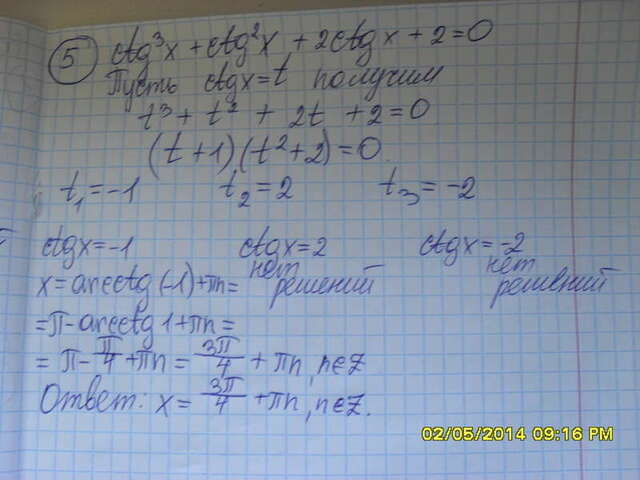 5 ctg³x + ctg²x + 2ctgx + 2 = 0
Пусть ctgx = t получим
t³ + t² + 2t + 2 = 0
(t+1)(t²+2) = 0
t₁ = -1 t₂ = 2 t₃ = -2
ctgx = -1 ctgx = 2 ctgx = -2
нет нет
x = arcctg(-1) + πn = решений решений
= π - arcctg1 + πn =
= π - π/4 + πn = 3π/4 + πn, n∈Z
Ответ: x = 3π/4 + πn, n∈Z.
02/05/2014 09:16 PM